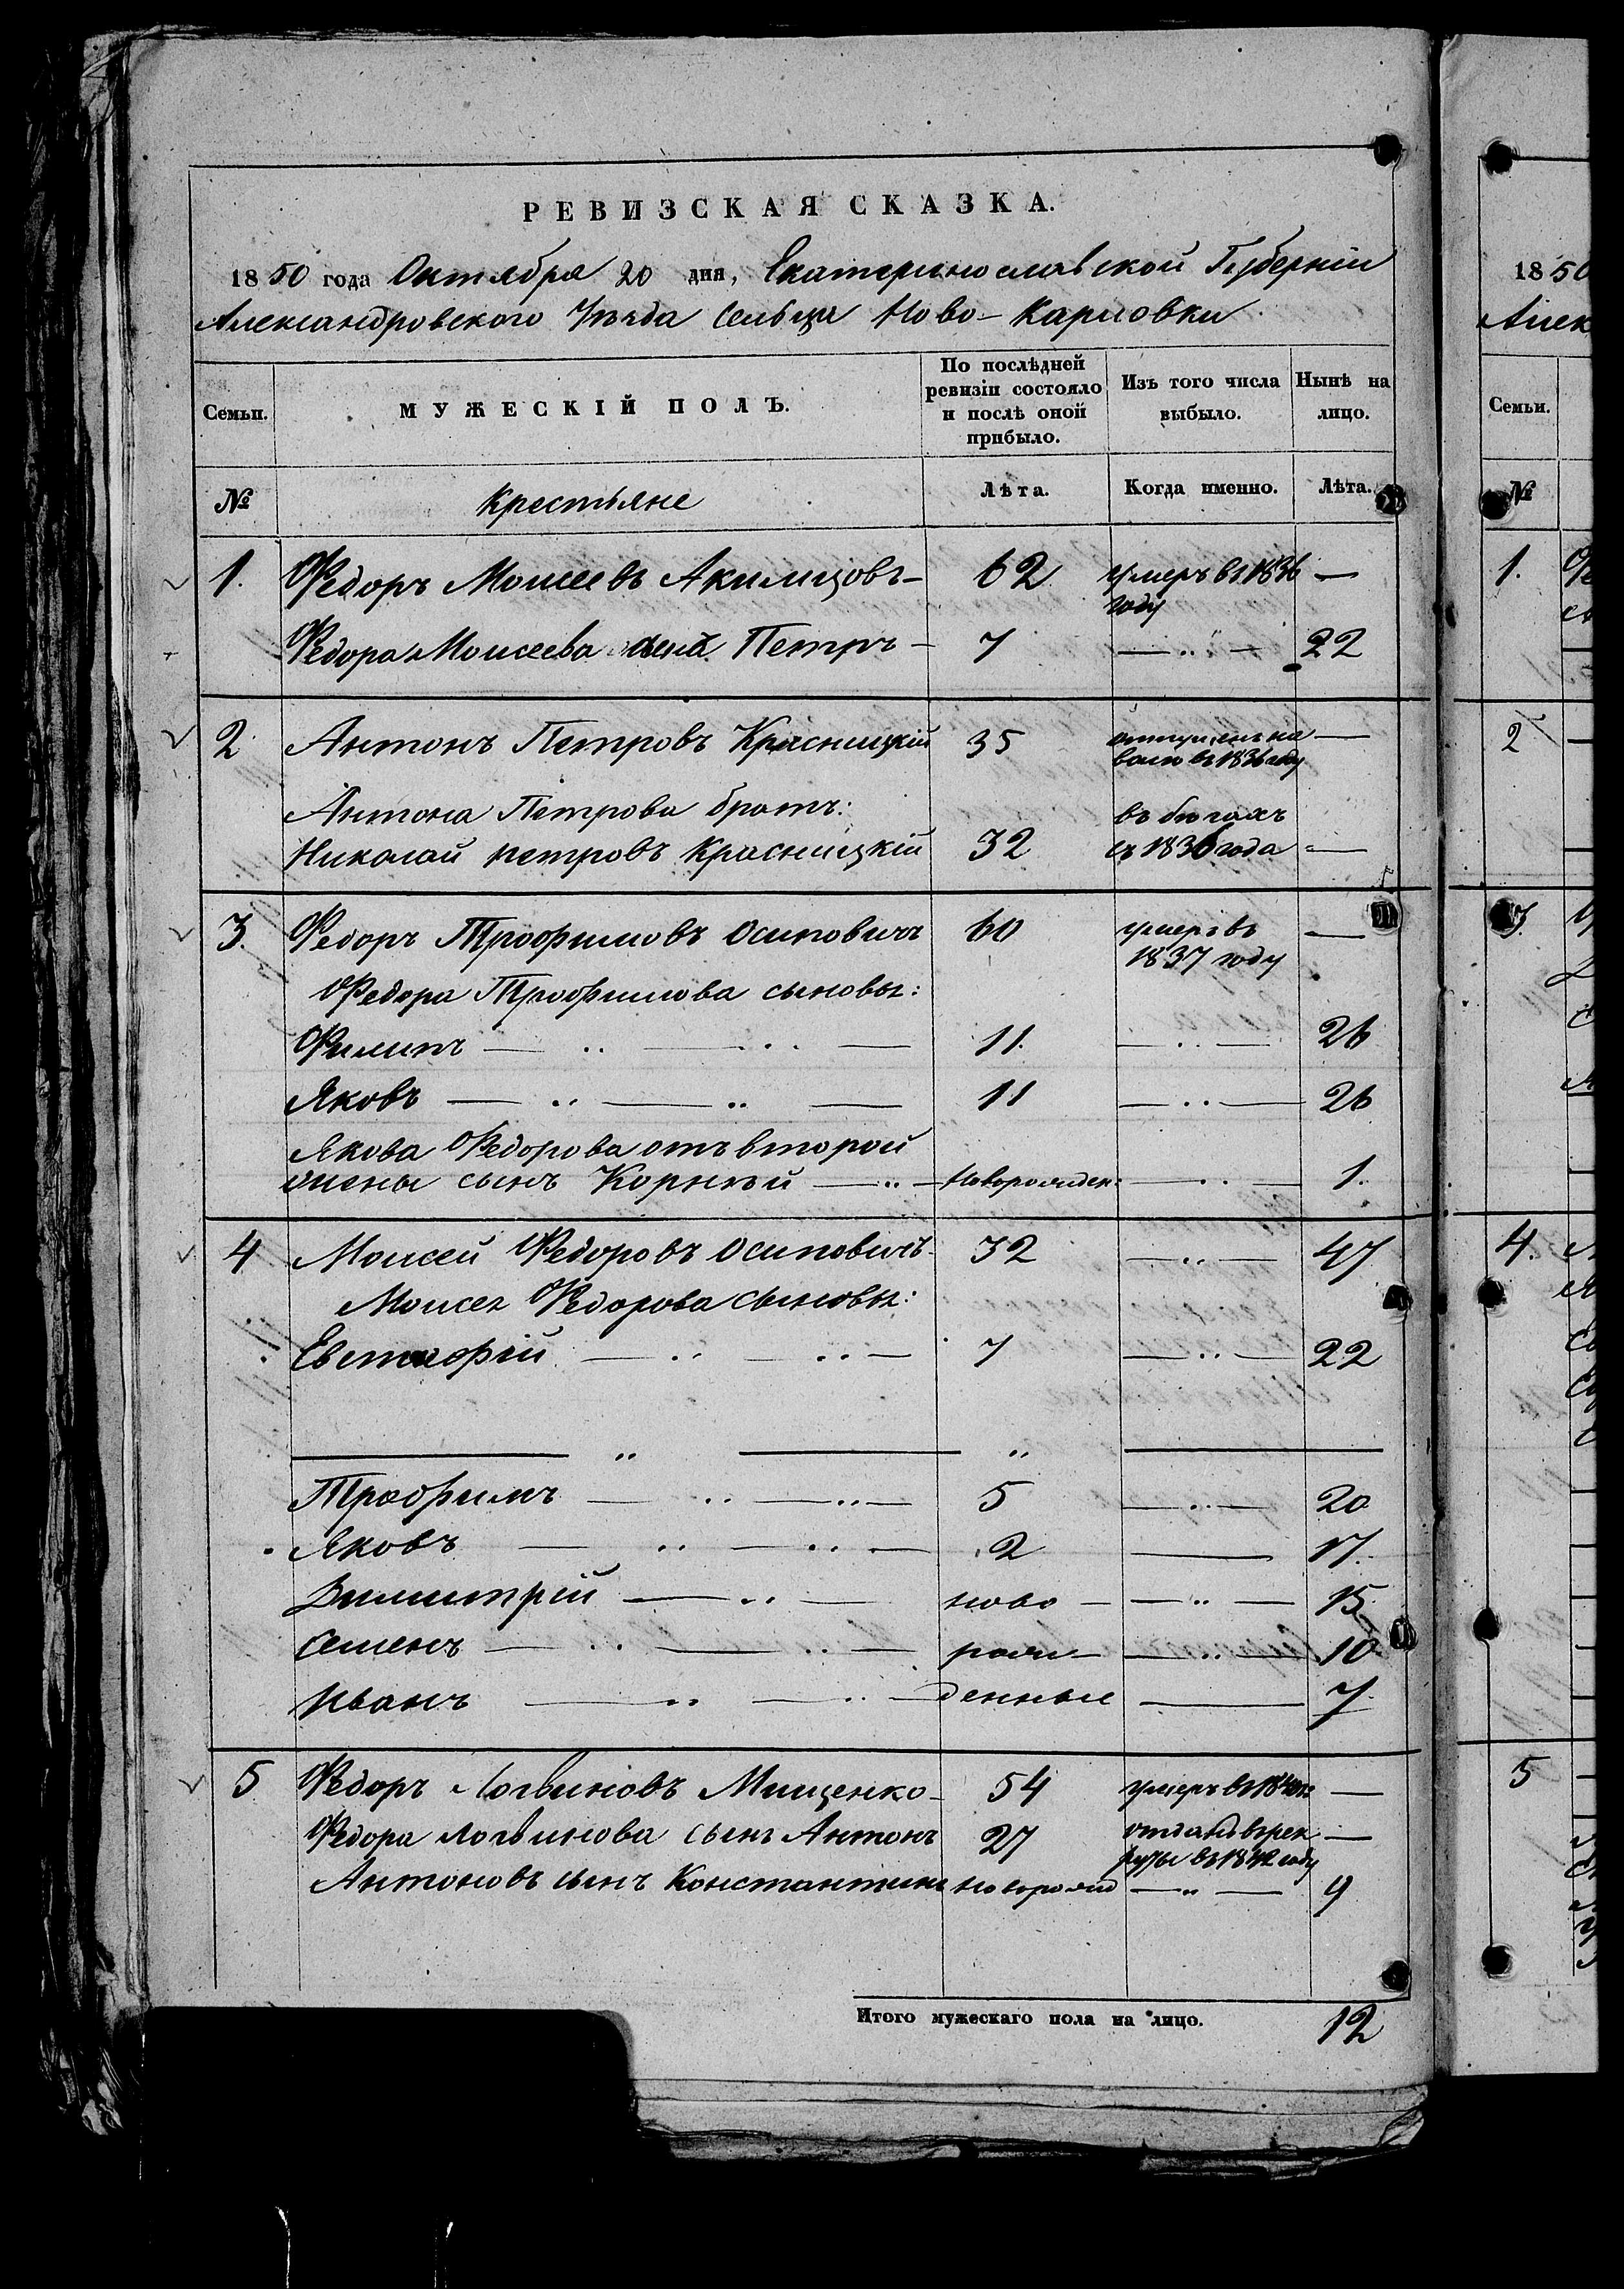 РЕВИЗСКАЯ СКАЗКА.
1850 года Октября 20 дня, Екатеринославской Губерніи
Александровского Уезда Сельца Ново-Карловки
Семьи.
МУЖЕСКІЙ ПОЛЪ.
По послѣдней ревизіи состояло и послѣ оной прибыло.
Изъ того числа выбыло.
Нынѣ на лицо.
№
Крестьяне
Лѣта.
Когда именно.
Лѣта.
1. Федоръ Моисеевъ Акимцовъ — 62 умеръ въ 1836 году —
Федора Моисеева сынъ Петръ — 7 — „ — 22
2 Антонъ Петровъ Красницкій 35 отпущенъ на волю въ 1836 году —
Антона Петрова братъ:
Николай петровъ Красницкій 32 въ бегахъ съ 1836 года —
3. Федоръ Трофимовъ Осиповичъ 60 умеръ въ 1837 году —
Федора Трофимова сыновья:
Филипъ — „ — „ — 11. — „ — 26
Яковъ — „ — „ — 11 — „ — 26
Якова Федорова отъ второй
жены сынъ Корней — „ — Новорожден: — „ — 1.
4 Моисей Федоровъ Осиповичъ 32 — „ — 47
Моисея Федорова сыновья:
Евстафій — „ — „ — 7 — „ — 22
— „ — „ —
Трофимъ — „ — „ — 5 — „ — 20
Яковъ — „ — „ — 2 — 17.
Димитрій — „ — ново — — „ — 15
Семенъ — „ — „ — рож — — „ — 10
Иванъ — „ — „ — денные — 7
5 Федоръ Логвиновъ Мищенко — 54 умеръ въ —
Федора Логвинова сынъ Антонъ 27 отданъ въ рекруты въ 1842 году —
Антоновъ сынъ Константинъ новорожд — „ — 9
Итого мужескаго пола на лицо. 12
1850
Алек
Семьи.
№
1.
2
3.
4.
5